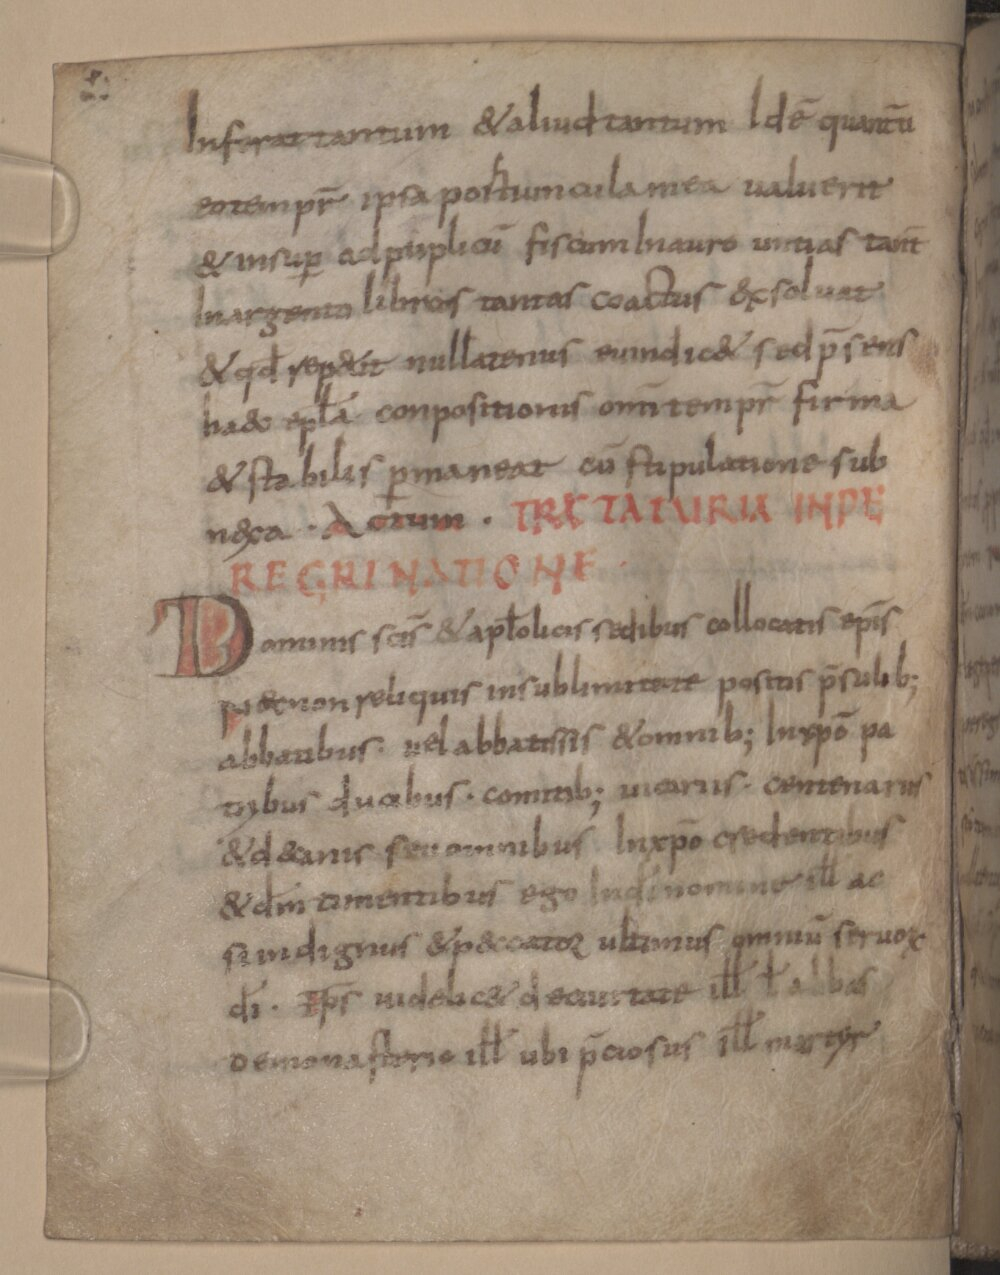 Inferat tantum & aliud tantum Idē quantū
eo tempr̄ ipsa portiuncula mea ualuerit
& insup̱ ad puplicū fiscum In auro untias tant
In argento libras tantas coactus &xsoluat
& qd̄ rep&it nullatenus euindic& sed p̄sens
haec epl̄a conpositionis om̄i tempr̄ firma
& stabilis p̱maneat cū stipulatione sub
n&xa · Actum · TRACTATURIA IN PE
REGRINATIONE ·
Dominis scīs & apl̄olicis sedibus collocatis ep̄is
necnon reliquis in sublimitate positis p̄sulib;
abbatibus · uel abbatissis & omnib; In xp̄o pa
tribus ducibus · comitib; uicariis · centenariis
& decanis seu omnibus In xp̄o credentibus
& dm̄ timentibus ego In dī nomine ill̄ ac
si indignus & peccator ultimus omniū seruoꝝ
dī · ep̄s uidelic& de ciuitate ill̄ ł abbas
de monasterio ill̄ ubi p̄ciosus ill̄ martyr